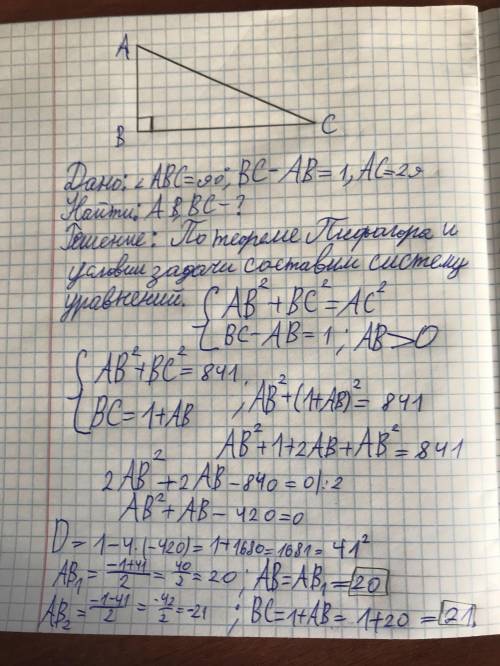 A
B
C
Дано: ∠ABC=90°; BC-AB=1, AC=29
Найти: AB, BC-?
Решение: По теореме Пифагора и
условии задачи составим систему
уравнений. { AB²+BC²=AC²
BC-AB=1 ; AB>0
{ AB²+BC²=841
BC=1+AB ; AB²+(1+AB)²=841
AB²+1+2AB+AB²=841
2AB²+2AB-840=0|:2
AB²+AB-420=0
D=1-4·(-420)=1+1680=1681=41²
AB₁=(-1+41)/2=40/2=20 ; AB=AB₁=20
AB₂=(-1-41)/2=-42/2=-21 ; BC=1+AB=1+20=21.